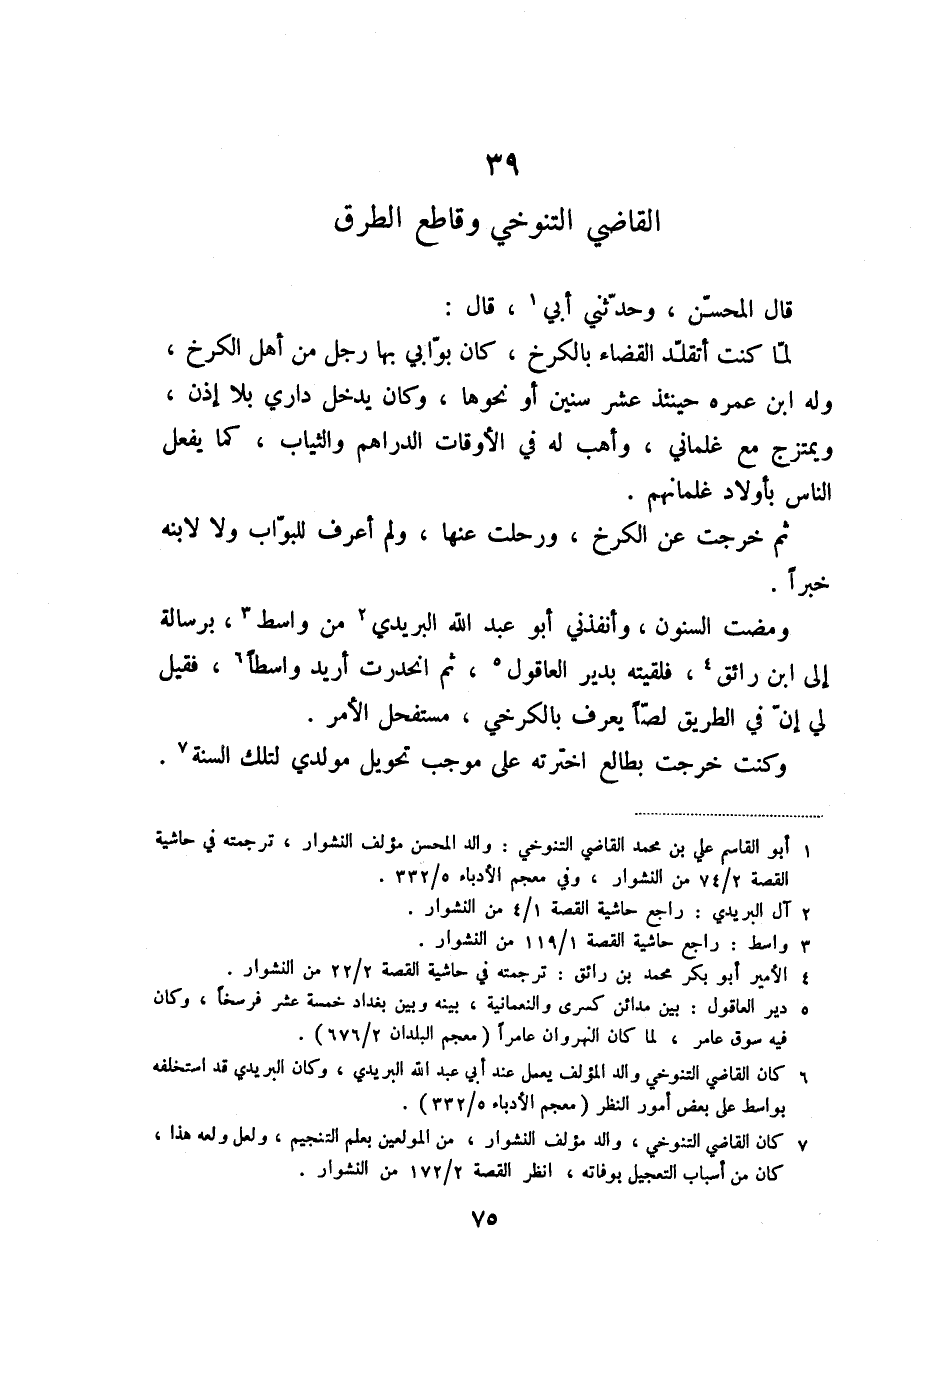 ٣٩
القاضي التنوخي وقاطع الطرق
قال المحسّن ، وحدّثني أبي ١ ، قال :
لمّا كنت أتقلّد القضاء بالكرخ ، كان بوّابي بها رجل من أهل الكرخ ،
وله ابن عمره حينئذ عشر سنين أو نحوها ، وكان يدخل داري بلا إذن ،
ويمتزج مع غلماني ، وأهب له في الأوقات الدراهم والثياب ، كما يفعل
الناس بأولاد غلمانهم .
ثم خرجت عن الكرخ ، ورحلت عنها ، ولم أعرف للبوّاب ولا لابنه
خبراً .
ومضت السنون ، وأنفذني أبو عبد الله البريدي ٢ من واسط ٣ ، برسالة
إلى ابن رائق ٤ ، فلقيته بدير العاقول ٥ ، ثم انحدرت أريد واسطاً ٦ ، فقيل
لي إنّ في الطريق لصّاً يعرف بالكرخي ، مستفحل الأمر .
وكنت خرجت بطالع اخترته على موجب تحويل مولدي لتلك السنة ٧ .
١ أبو القاسم علي بن محمد القاضي التنوخي : والد المحسن مؤلف النشوار ، ترجمته في حاشية
القصة ٧٤/٢ من النشوار ، وفي معجم الأدباء ٣٣٢/٥ .
٢ آل البريدي : راجع حاشية القصة ٤/١ من النشوار .
٣ واسط : راجع حاشية القصة ١١٩/١ من النشوار .
٤ الأمير أبو بكر محمد بن رائق : ترجمته في حاشية القصة ٢٢/٢ من النشوار .
٥ دير العاقول : بين مدائن كسرى والنعمانية ، بينه وبين بغداد خمسة عشر فرسخاً ، وكان
فيه سوق عامر ، لما كان النهروان عامراً ( معجم البلدان ٦٧٦/٢ ) .
٦ كان القاضي التنوخي والد المؤلف يعمل عند أبي عبد الله البريدي ، وكان البريدي قد استخلفه
بواسط على بعض أمور النظر ( معجم الأدباء ٣٣٢/٥ ) .
٧ كان القاضي التنوخي ، والد مؤلف النشوار ، من المولعين بعلم التنجيم ، ولعل ولعه هذا ،
كان من أسباب التعجيل بوفاته ، انظر القصة ١٧٢/٢ من النشوار .
٧٥